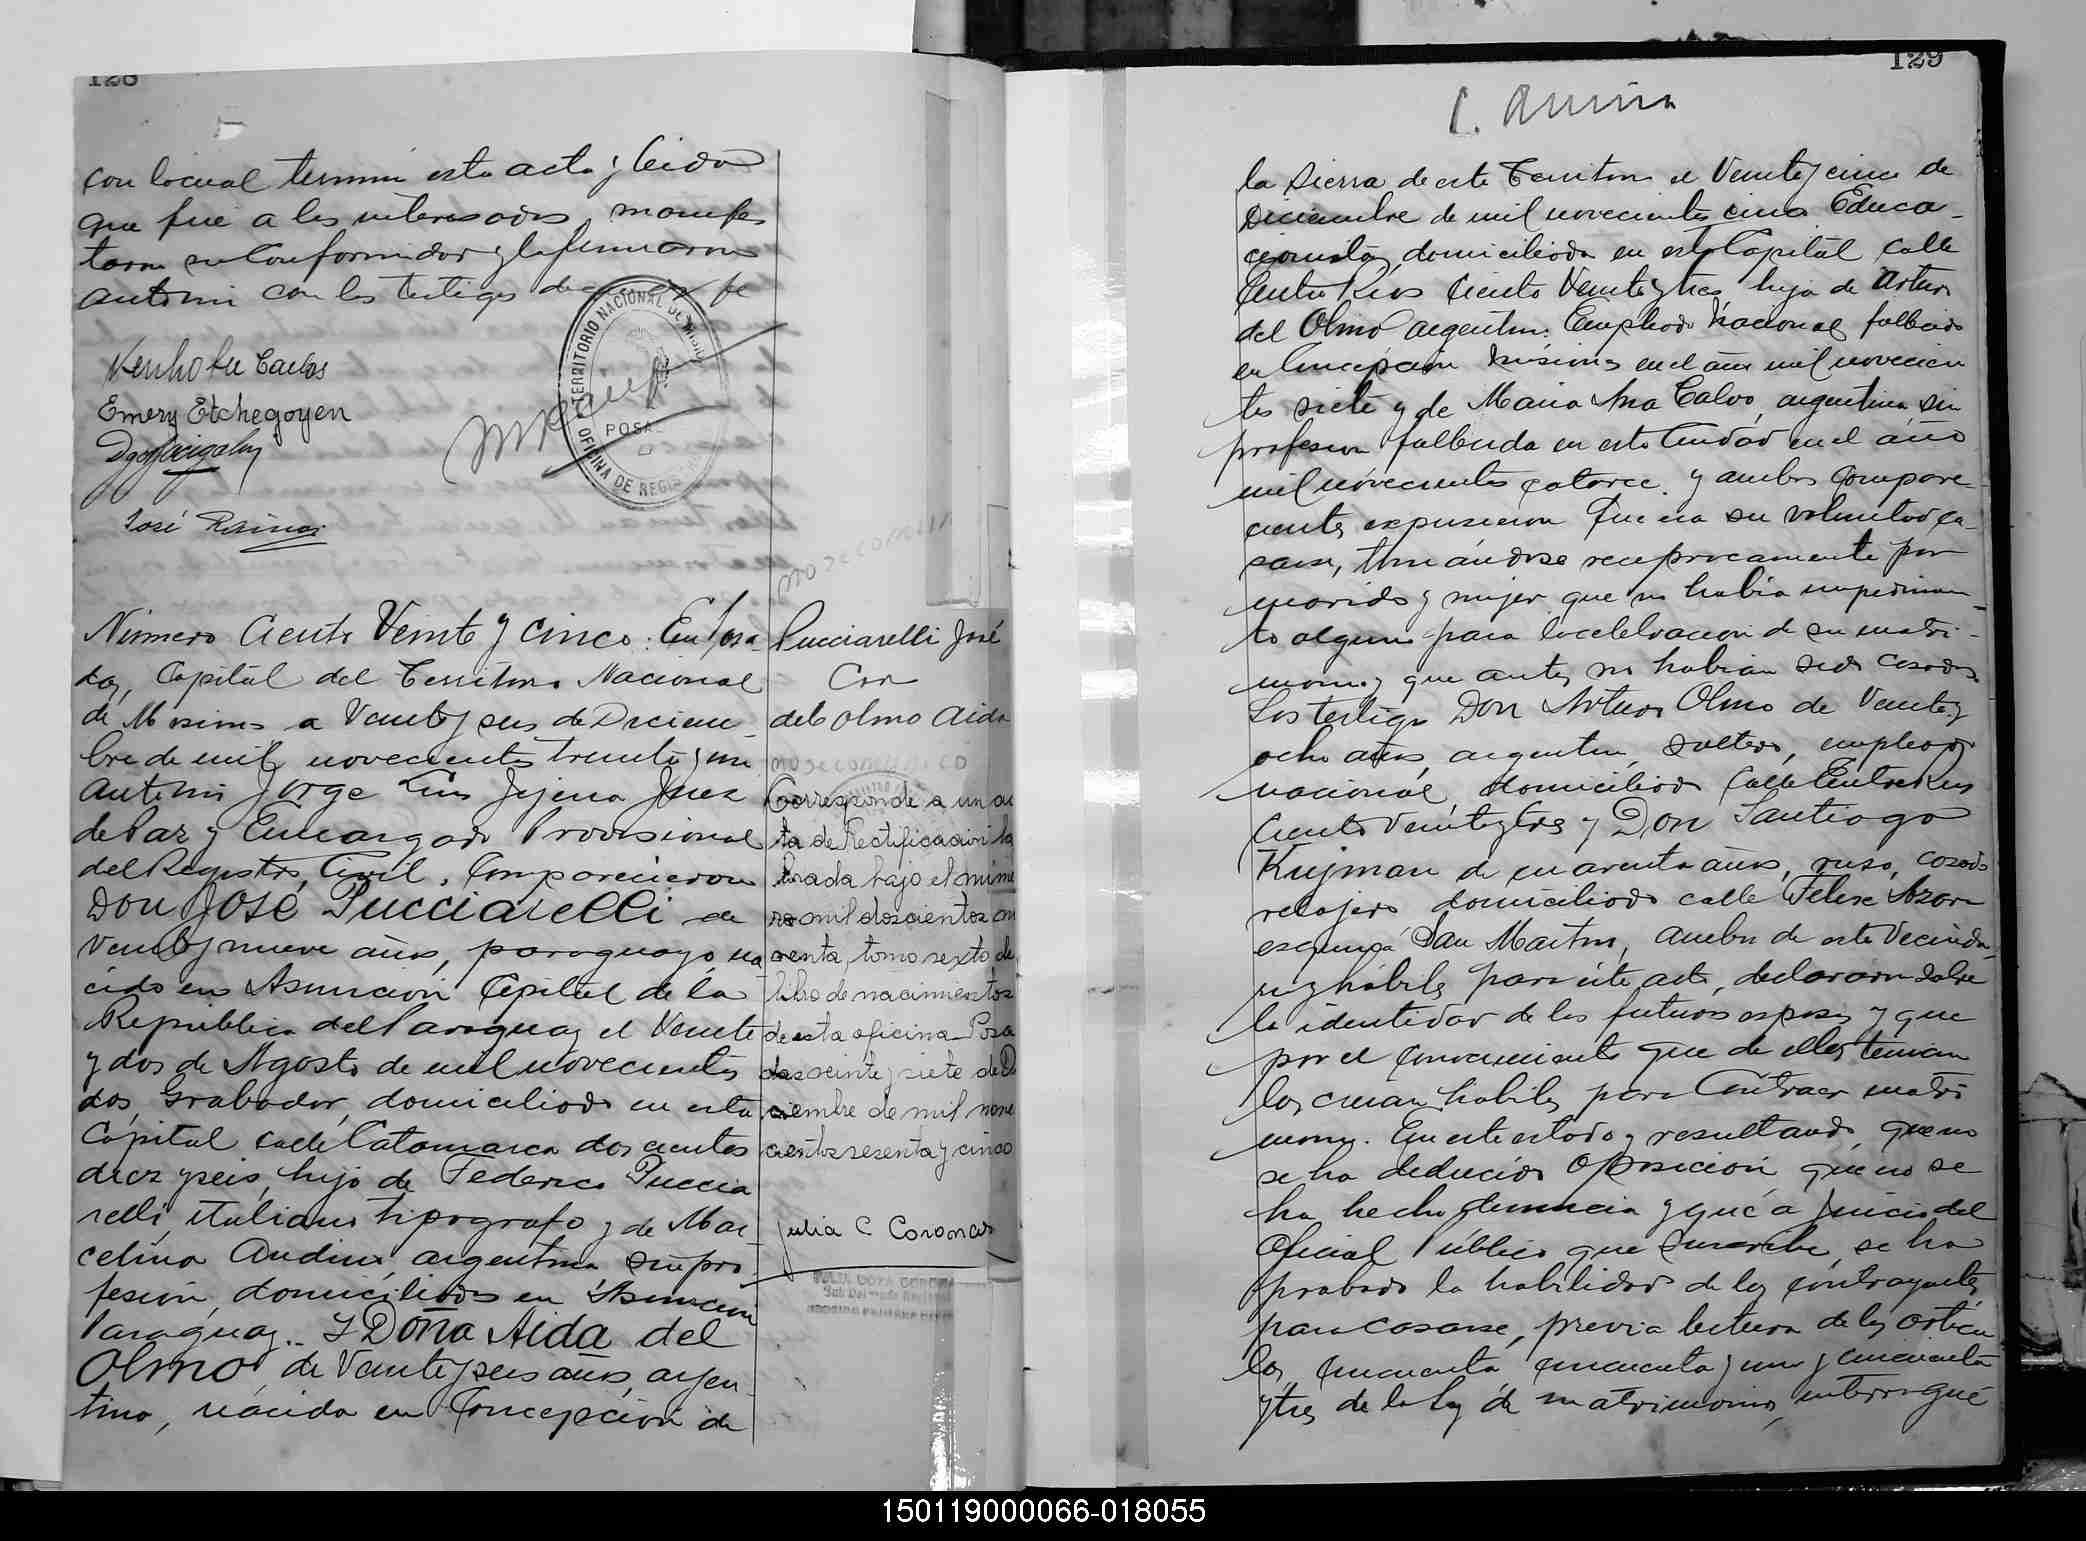 128
con locual terminó esta acta y leida
que fué a los interesados, manifes
taron su conformidad y la firmaron
ante mi con los testigos de
TERRITORIO NACIONAL DE MISIO
POSA
OFICINA DE REGIS
Carlos
Emery Etchegoyen
José Ramirez
Número Ciento Veinte y cinco. En Posa-
das, Capital del Territorio Nacional
de Misiones a Veinte y seis de Diciem-
bre de mil novecientos treinta y uno
ante mi Jorge Luis Jejena Juez
de Paz y Encargado Provisional
del Registro Civil, Comparecieron
Don José Pucciarelli de
veinte y nueve años, paraguayo, na
cido en Asunción Capital de la
Republica del Paraguay el Veinte
y dos de Agosto de mil novecientos
dos, grabador, domiciliado en esta
Capital calle Catamarca dos cientos
diez y seis, hijo de Federico Puccia
relli, italiano tipografo y de Mar
celina Audine argentina sin pro-
fesión, domiciliados en Asunción
Paraguay.. Y Doña Aida del
Olmo, de Veinte y seis años, argen-
tina, nacida en Concepción de
no se comunicó
Pucciarelli José
Con
del Olmo Aida
no se comunicó
Corresponde a un ac
ta de Rectificación la
brada bajo el núme
ro mil doscientos cua
renta, tomo sexto de
libro de nacimientos
de esta oficina - Posa
das veinte y siete de Di
ciembre de mil nove
cientos sesenta y cinco
Julia C Coronas
129
la Sierra de este Territorio el Veinte y cinco de
Diciembre de mil novecientos cinco Educa-
cionista, domiciliada en esta Capital calle
Entre Rios Ciento Veinte y tres, hija de Arturo
del Olmo argentino. Empleado Nacional, fallecido
en Concepción Misiones en el año mil novecien
tos siete y de Maria Ana Calvo, argentina, sin
profesion fallecida en esta Ciudad en el año
mil novecientos catorce. y ambos compare-
cientes expusieron Que era su voluntad ca-
sarse, tomándose reciprocamente por
marido y mujer, que no habia impedimen-
to alguno para la celebracion de su matri-
monio y que antes no habian sido casados.
Los testigos Don Arturo Olmo de Veinte y
ocho años, argentino, soltero, empleado
nacional, domiciliado Calle Entre Rios
Ciento Veinte y tres y Don Santiago
Kujman de cuarenta años, ruso, casado
relojero domiciliado calle Felix Azara
esquina San Martin, ambos de este Vecinda-
rio y hábiles para este acto, declararon sobre
la identidad de los futuros esposos y que
por el conocimiento que de ellos tenian
los creian habiles para Contraer matri
monio. En este estado y resultando que no
se ha deducido oposicion que no se
ha hecho denuncia y que a juicio del
Oficial Público que suscribe, se ha
probado la habilidad de los contrayentes
para casarse, previa lectura de los articu
los, cincuenta cincuenta y uno y cincuenta
y tres de la ley de matrimonio, interrogué
150119000066-018055